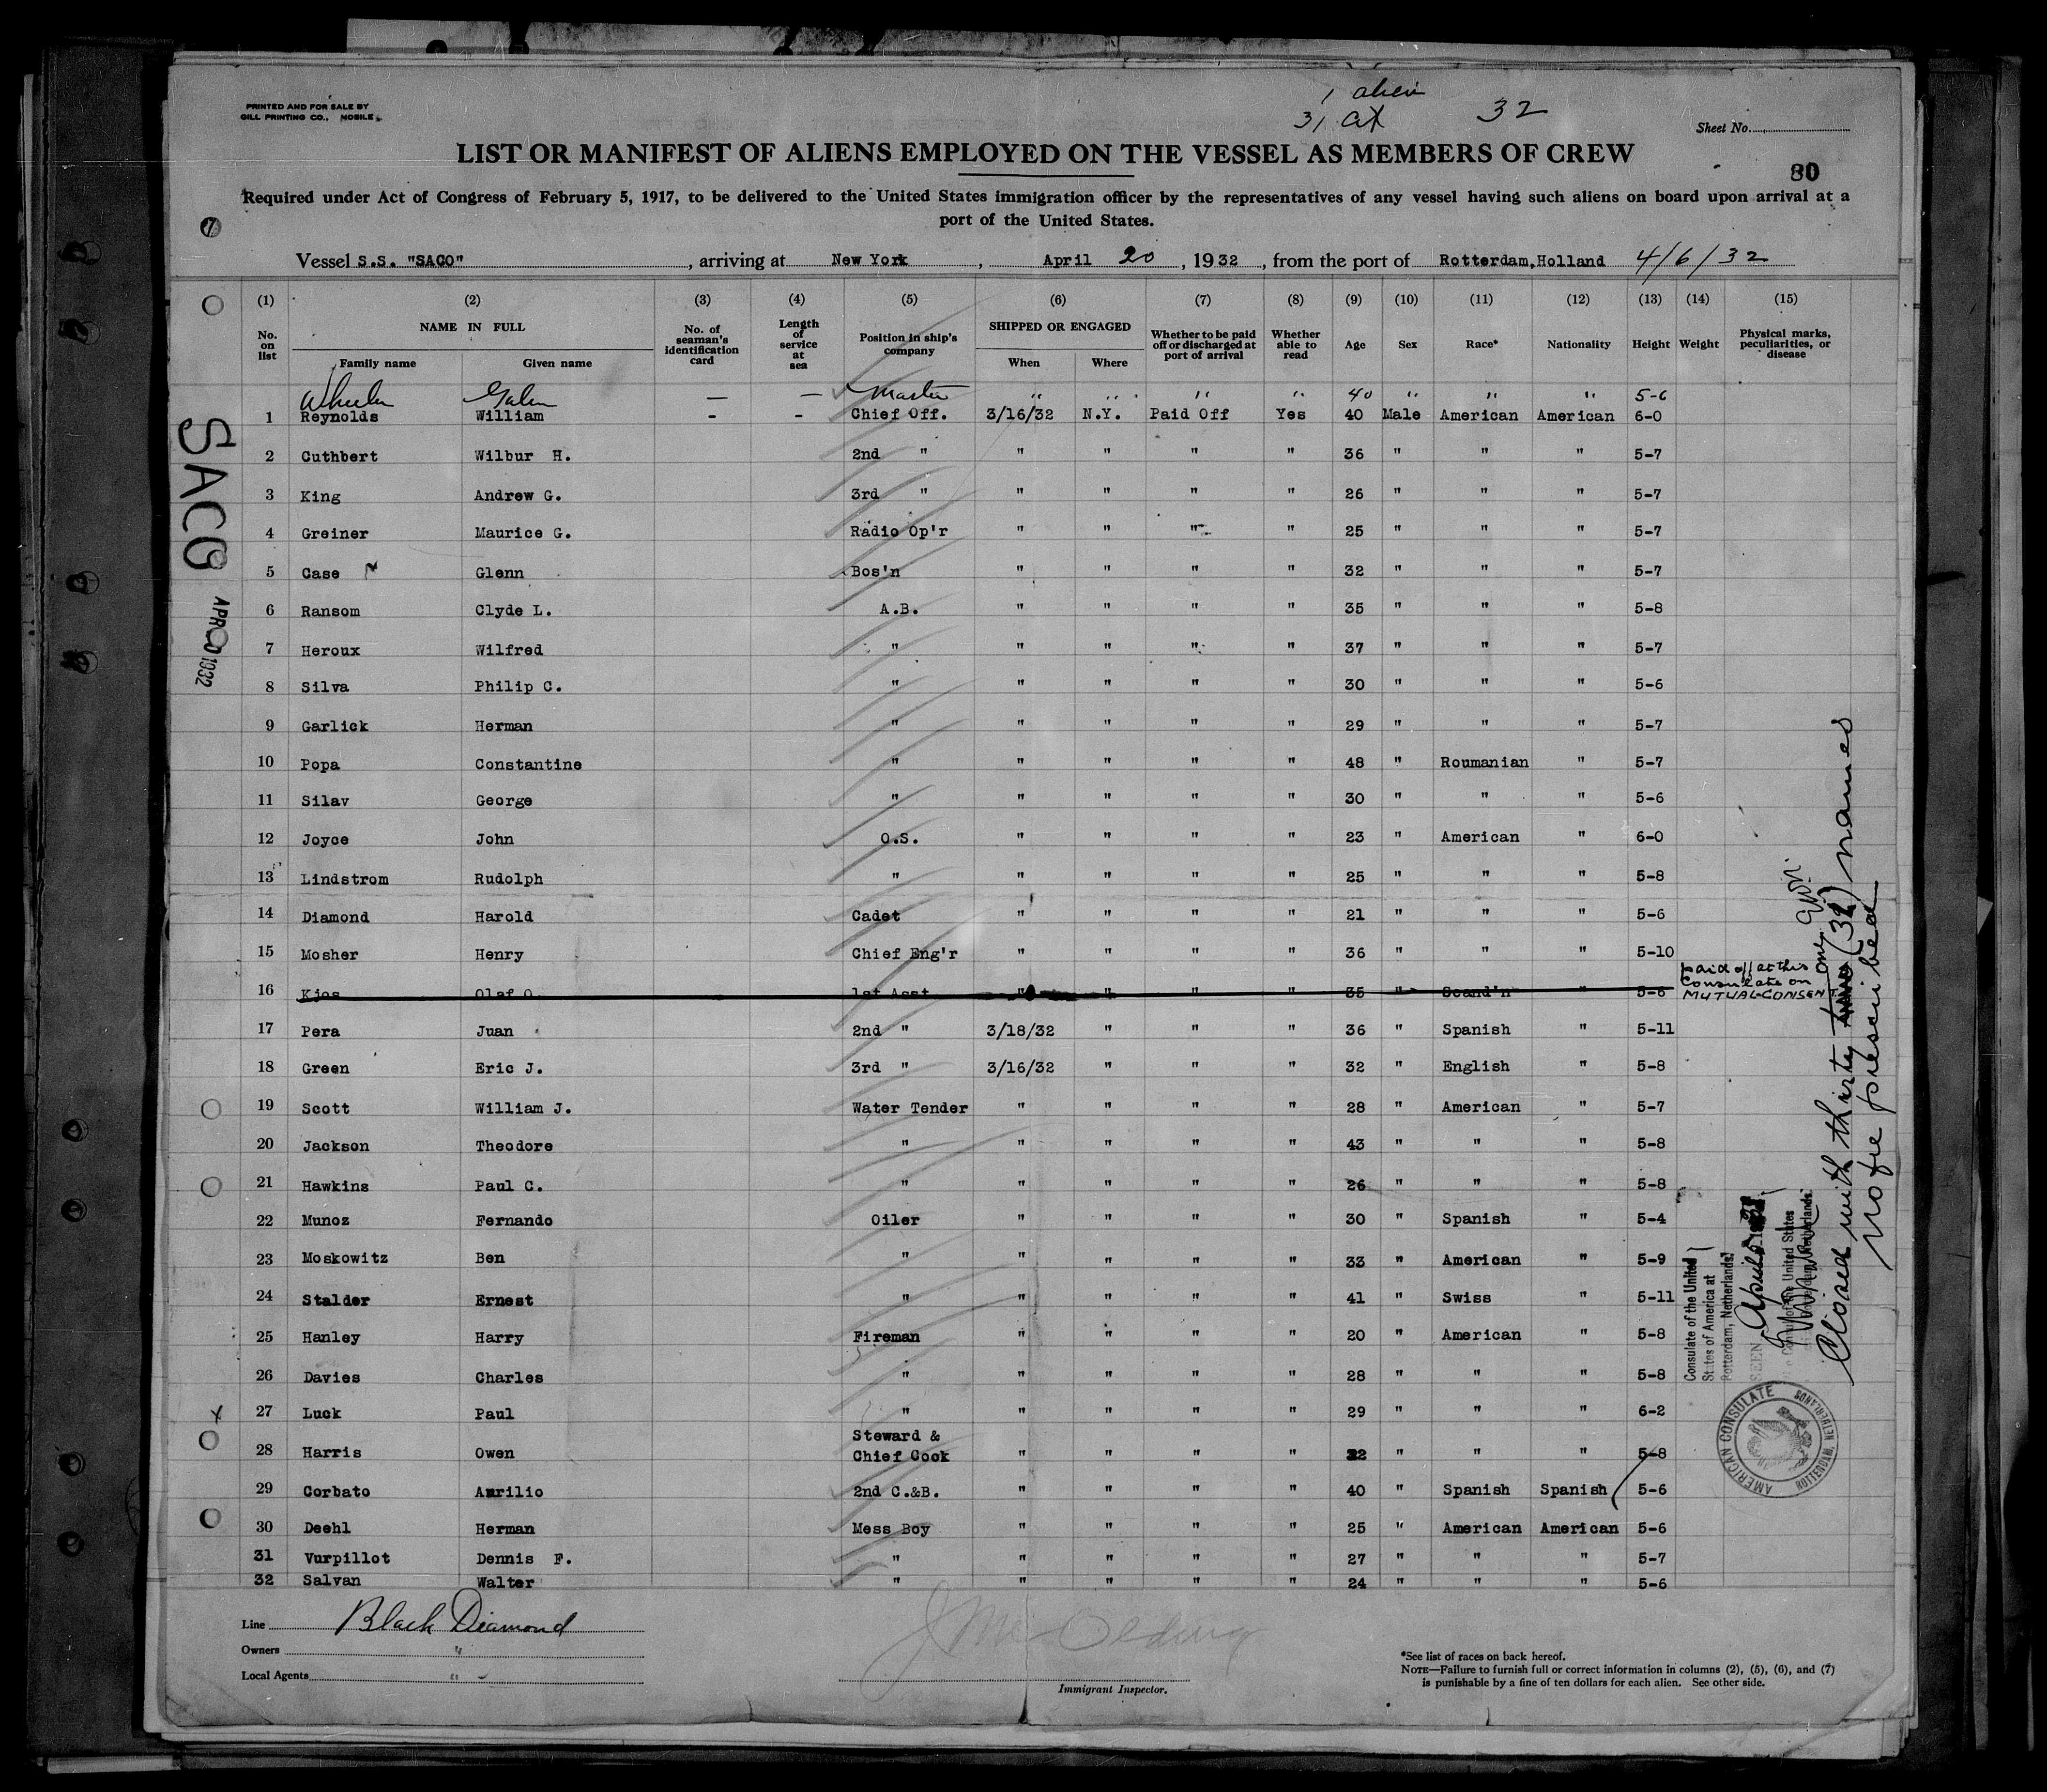 PRINTED AND FOR SALE BY
GILL PRINTING CO., MOBILE
1 alien
31 cit 32
Sheet No.
LIST OR MANIFEST OF ALIENS EMPLOYED ON THE VESSEL AS MEMBERS OF CREW
80
Required under Act of Congress of February 5, 1917, to be delivered to the United States immigration officer by the representatives of any vessel having such aliens on board upon arrival at a
port of the United States.
Vessel S.S. "SACO", arriving at New York, April 20, 1932, from the port of Rotterdam,Holland 4/6/32
(1) (2) (3) (4) (5) (6) (7) (8) (9) (10) (11) (12) (13) (14) (15)
No. on list NAME IN FULL Family name Given name No. of seaman's identification card Length of service at sea Position in ship's company SHIPPED OR ENGAGED When Where Whether to be paid off or discharged at port of arrival Whether able to read Age Sex Race* Nationality Height Weight Physical marks, peculiarities, or disease
Wheeler Galen — — Master " " " " 40 " " " 5-6
1 Reynolds William - - Chief Off. 3/16/32 N.Y. Paid Off Yes 40 Male American American 6-0
2 Cuthbert Wilbur H. 2nd " " " " " 36 " " " 5-7
3 King Andrew G. 3rd " " " " " 26 " " " 5-7
4 Greiner Maurice G. Radio Op'r " " " " 25 " " " 5-7
5 Case Glenn Bos'n " " " " 32 " " " 5-7
6 Ransom Clyde L. A.B. " " " " 35 " " " 5-8
7 Heroux Wilfred " " " " " 37 " " " 5-7
8 Silva Philip C. " " " " " 30 " " " 5-6
9 Garlick Herman " " " " " 29 " " " 5-7
10 Popa Constantine " " " " " 48 " Roumanian " 5-7
11 Silav George " " " " " 30 " " " 5-6
12 Joyce John O.S. " " " " 23 " American " 6-0
13 Lindstrom Rudolph " " " " " 25 " " " 5-8
14 Diamond Harold Cadet " " " " 21 " " " 5-6
15 Mosher Henry Chief Eng'r " " " " 36 " " " 5-10
16 Kjos Olaf O. 1st Asst " " " " 35 " Scand'n " 5-6 paid off at this
Consulate on
MUTUAL CONSENT.
17 Pera Juan 2nd " 3/18/32 " " " 36 " Spanish " 5-11
18 Green Eric J. 3rd " 3/16/32 " " " 32 " English " 5-8
19 Scott William J. Water Tender " " " " 28 " American " 5-7
20 Jackson Theodore " " " " " 43 " " " 5-8
21 Hawkins Paul C. " " " " " 26 " " " 5-8
22 Munoz Fernando Oiler " " " " 30 " Spanish " 5-4
23 Moskowitz Ben " " " " " 33 " American " 5-9
24 Stalder Ernest " " " " " 41 " Swiss " 5-11
25 Hanley Harry Fireman " " " " 20 " American " 5-8
26 Davies Charles " " " " " 28 " " " 5-8
27 Luck Paul " " " " " 29 " " " 6-2
28 Harris Owen Steward & Chief Cook " " " " 32 " " " 5-8
29 Corbato Aurilio 2nd C.&B. " " " " 40 " Spanish Spanish 5-6
30 Deehl Herman Mess Boy " " " " 25 " American American 5-6
31 Vurpillot Dennis F. " " " " " 27 " " " 5-7
32 Salvan Walter " " " " " 24 " " " 5-6
SACO
APR 20 1932
Closed with thirty one (31) names
No fee prescribed
Consulate of the United
States of America at
Rotterdam, Netherlands
SEEN April
Consul of the United States
AMERICAN CONSULATE
ROTTERDAM, NETHERLANDS
Line Black Diamond
Owners "
Local Agents "
Immigrant Inspector.
*See list of races on back hereof.
NOTE—Failure to furnish full or correct information in columns (2), (5), (6), and (7)
is punishable by a fine of ten dollars for each alien. See other side.